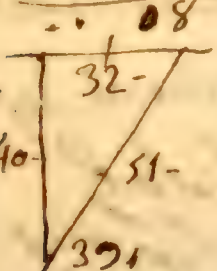 08
32-
40- 51-
39